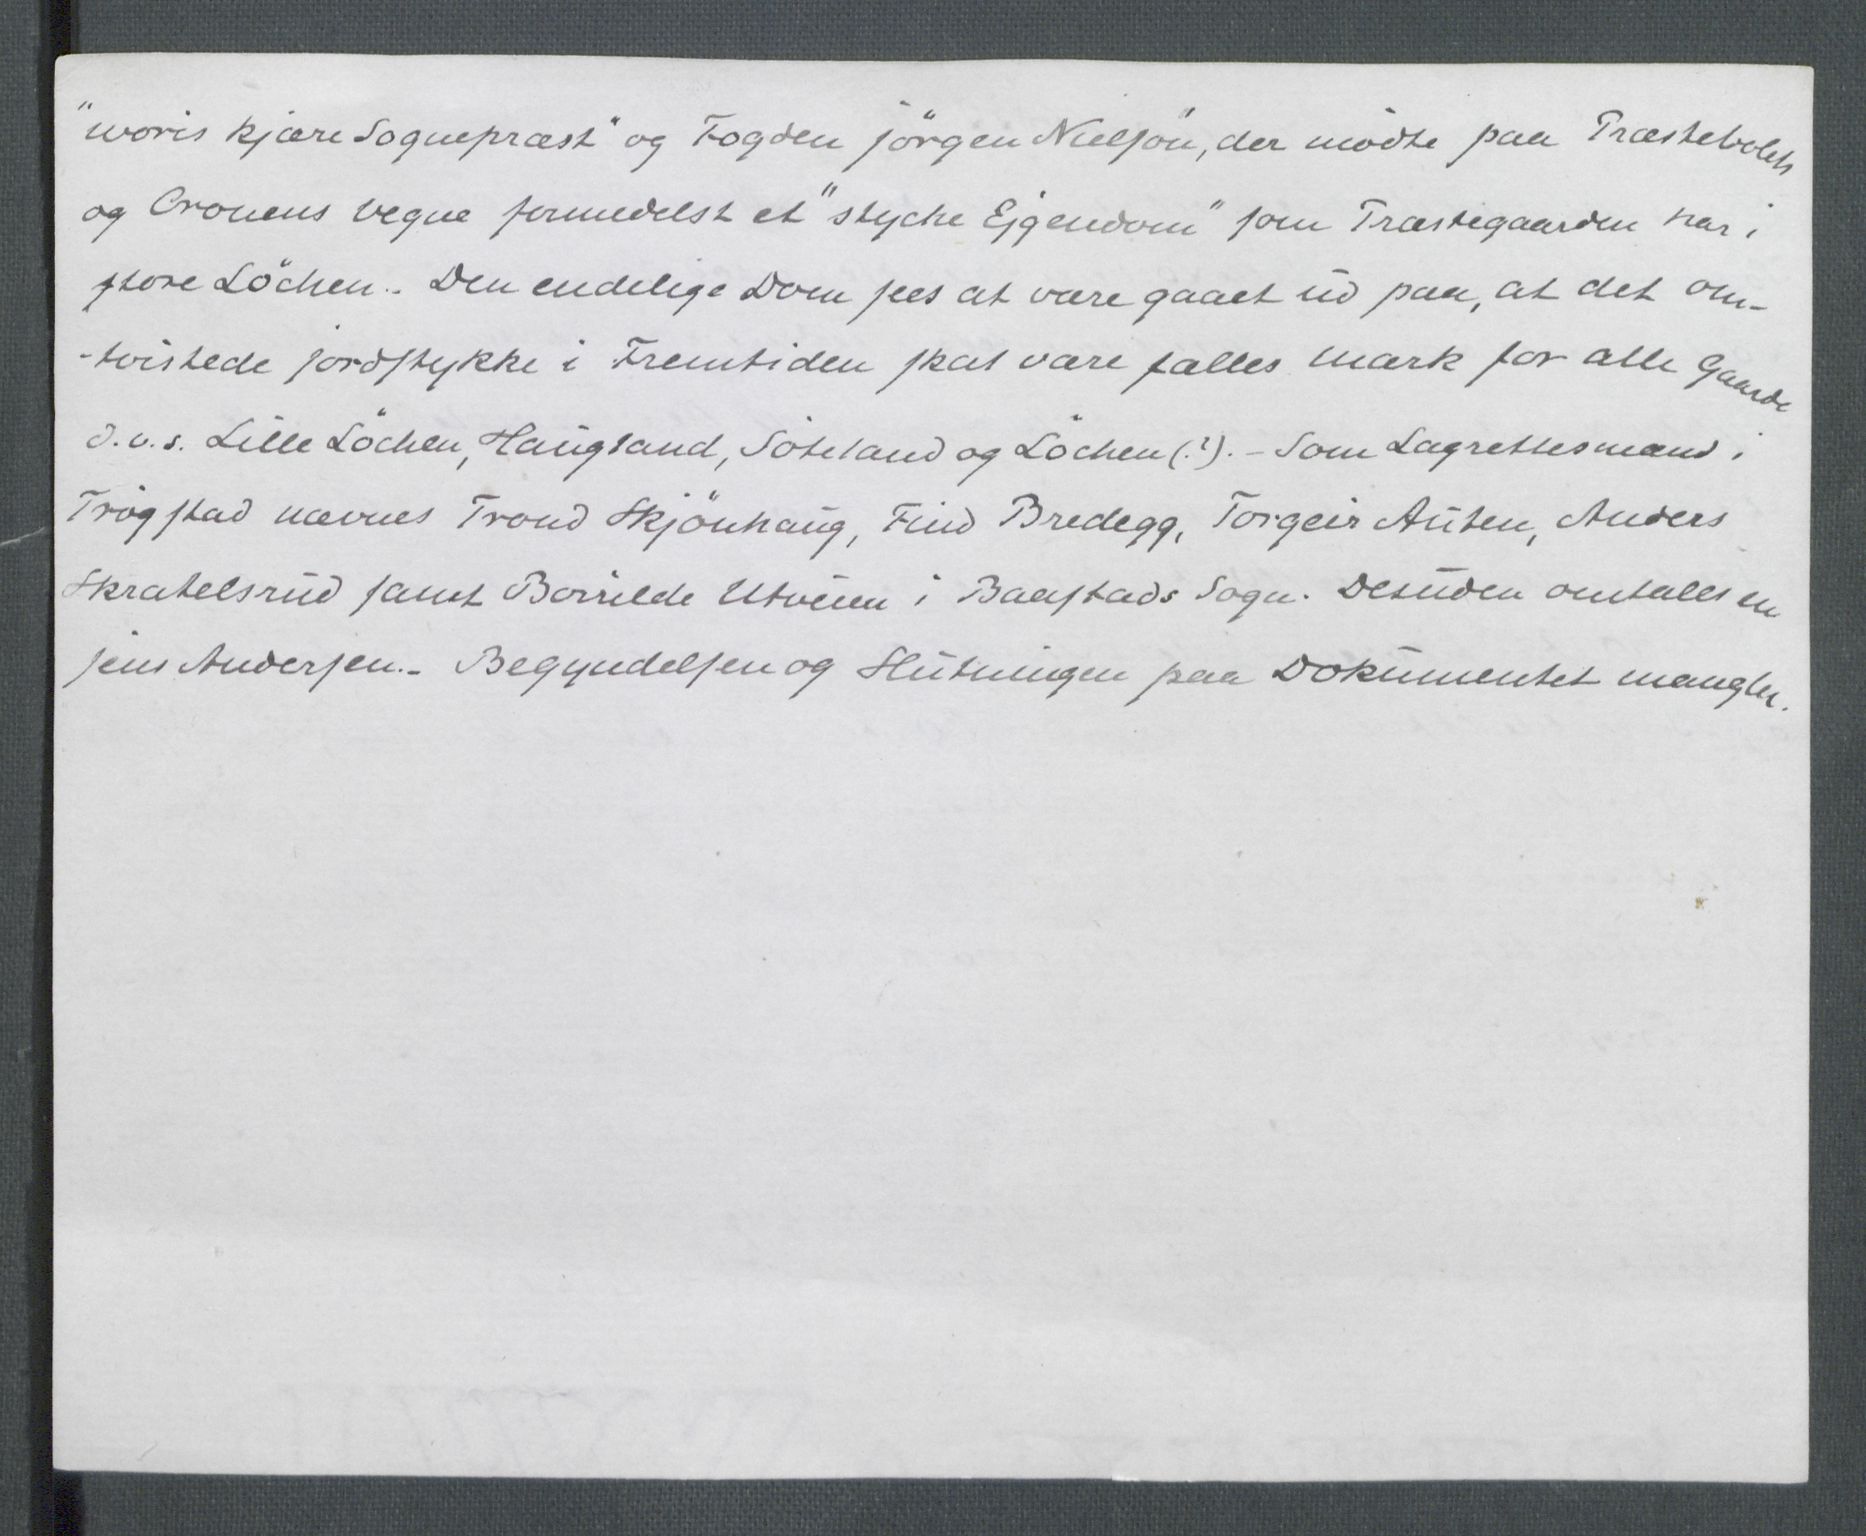 "woris kjære Sognepræst" og Fogden Jörgen Nielsön, der mödte paa Præstebolets
og Cronens vegne formedelst et "stycke Ejgendom" som Præstegaarden har i
store Löchen.- Den endelige Dom sees at være gaaet ud paa, at det om-
-tvistede Jordstykke i Fremtiden skal være fælles mark for alle Gaarde
d.v.s. Lille Löchen, Haugland, Söteland og Löchen (?).- Som Lagrettesmænd i
Trögstad nævnes Trond Skjönhaug, Find Bredegg, Torgeir Auten, Anders
Skratelsrud samt Borrilde Utveien i Baastads Sogn. Desuden omtales en
Jens Andersen.- Begyndelsen og Slutningen paa Dokumentet mangler.